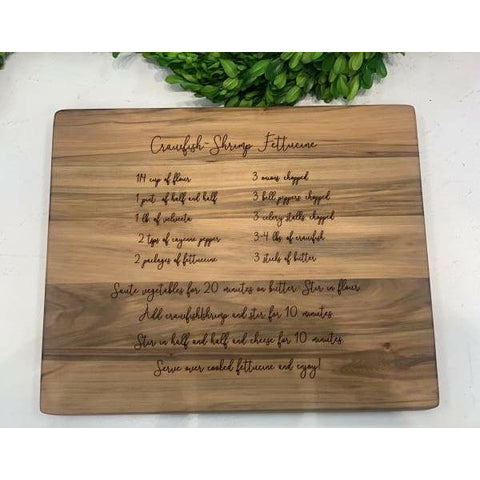 Crawfish-Shrimp Fettuccine
1/4 cup of flour
1 pint of half and half
1 lb of velveeta
2 tsps of cayenne pepper
2 packages of fettuccine
3 onions chopped
3 bell peppers chopped
3 celery stalks chopped
3-4 lbs of crawfish
3 sticks of butter
Saute vegetables for 20 minutes on butter. Stir in flour.
Add crawfish&shrimp and stir for 10 minutes.
Stir in half and half and cheese for 10 minutes.
Serve over cooked fettuccine and enjoy!